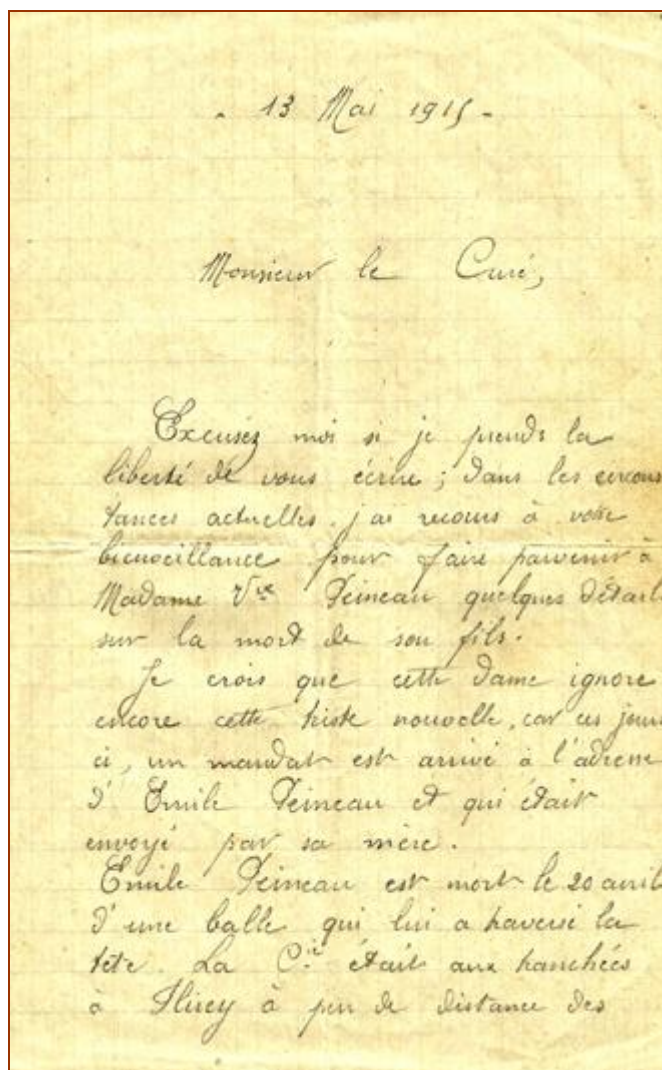 - 13 Mai 1915 -
Monsieur le Curé,
Excusez moi si je prends la
liberté de vous écrire ; dans les circons
tances actuelles. j'ai recours à votre
bienveillance pour faire parvenir à
Madame Vve Peineau quelques détails
sur la mort de son fils.
Je crois que cette dame ignore
encore cette triste nouvelle, car ces jours
ci, un mandat est arrivé à l'adresse
d'Emile Peineau et qui était
envoyé par sa mère.
Emile Peineau est mort le 20 avril
d'une balle qui lui a traversé la
tête. La Cie était aux tranchées
à Flirey à peu de distance des